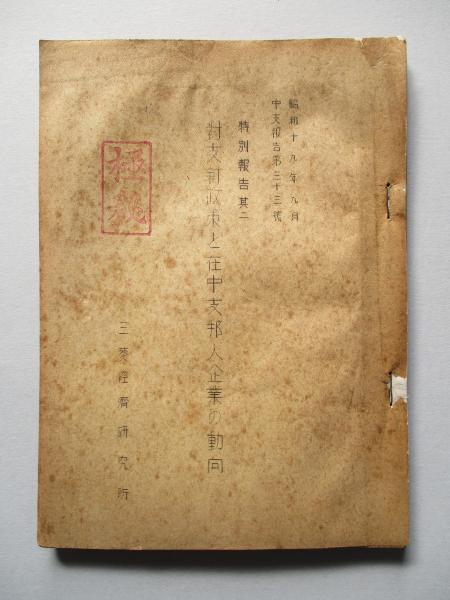 昭和十九年九月
中支報告第三十三號
特別報告其二
対支新政策と在中支邦人企業の動向
極秘
三菱経濟研究所